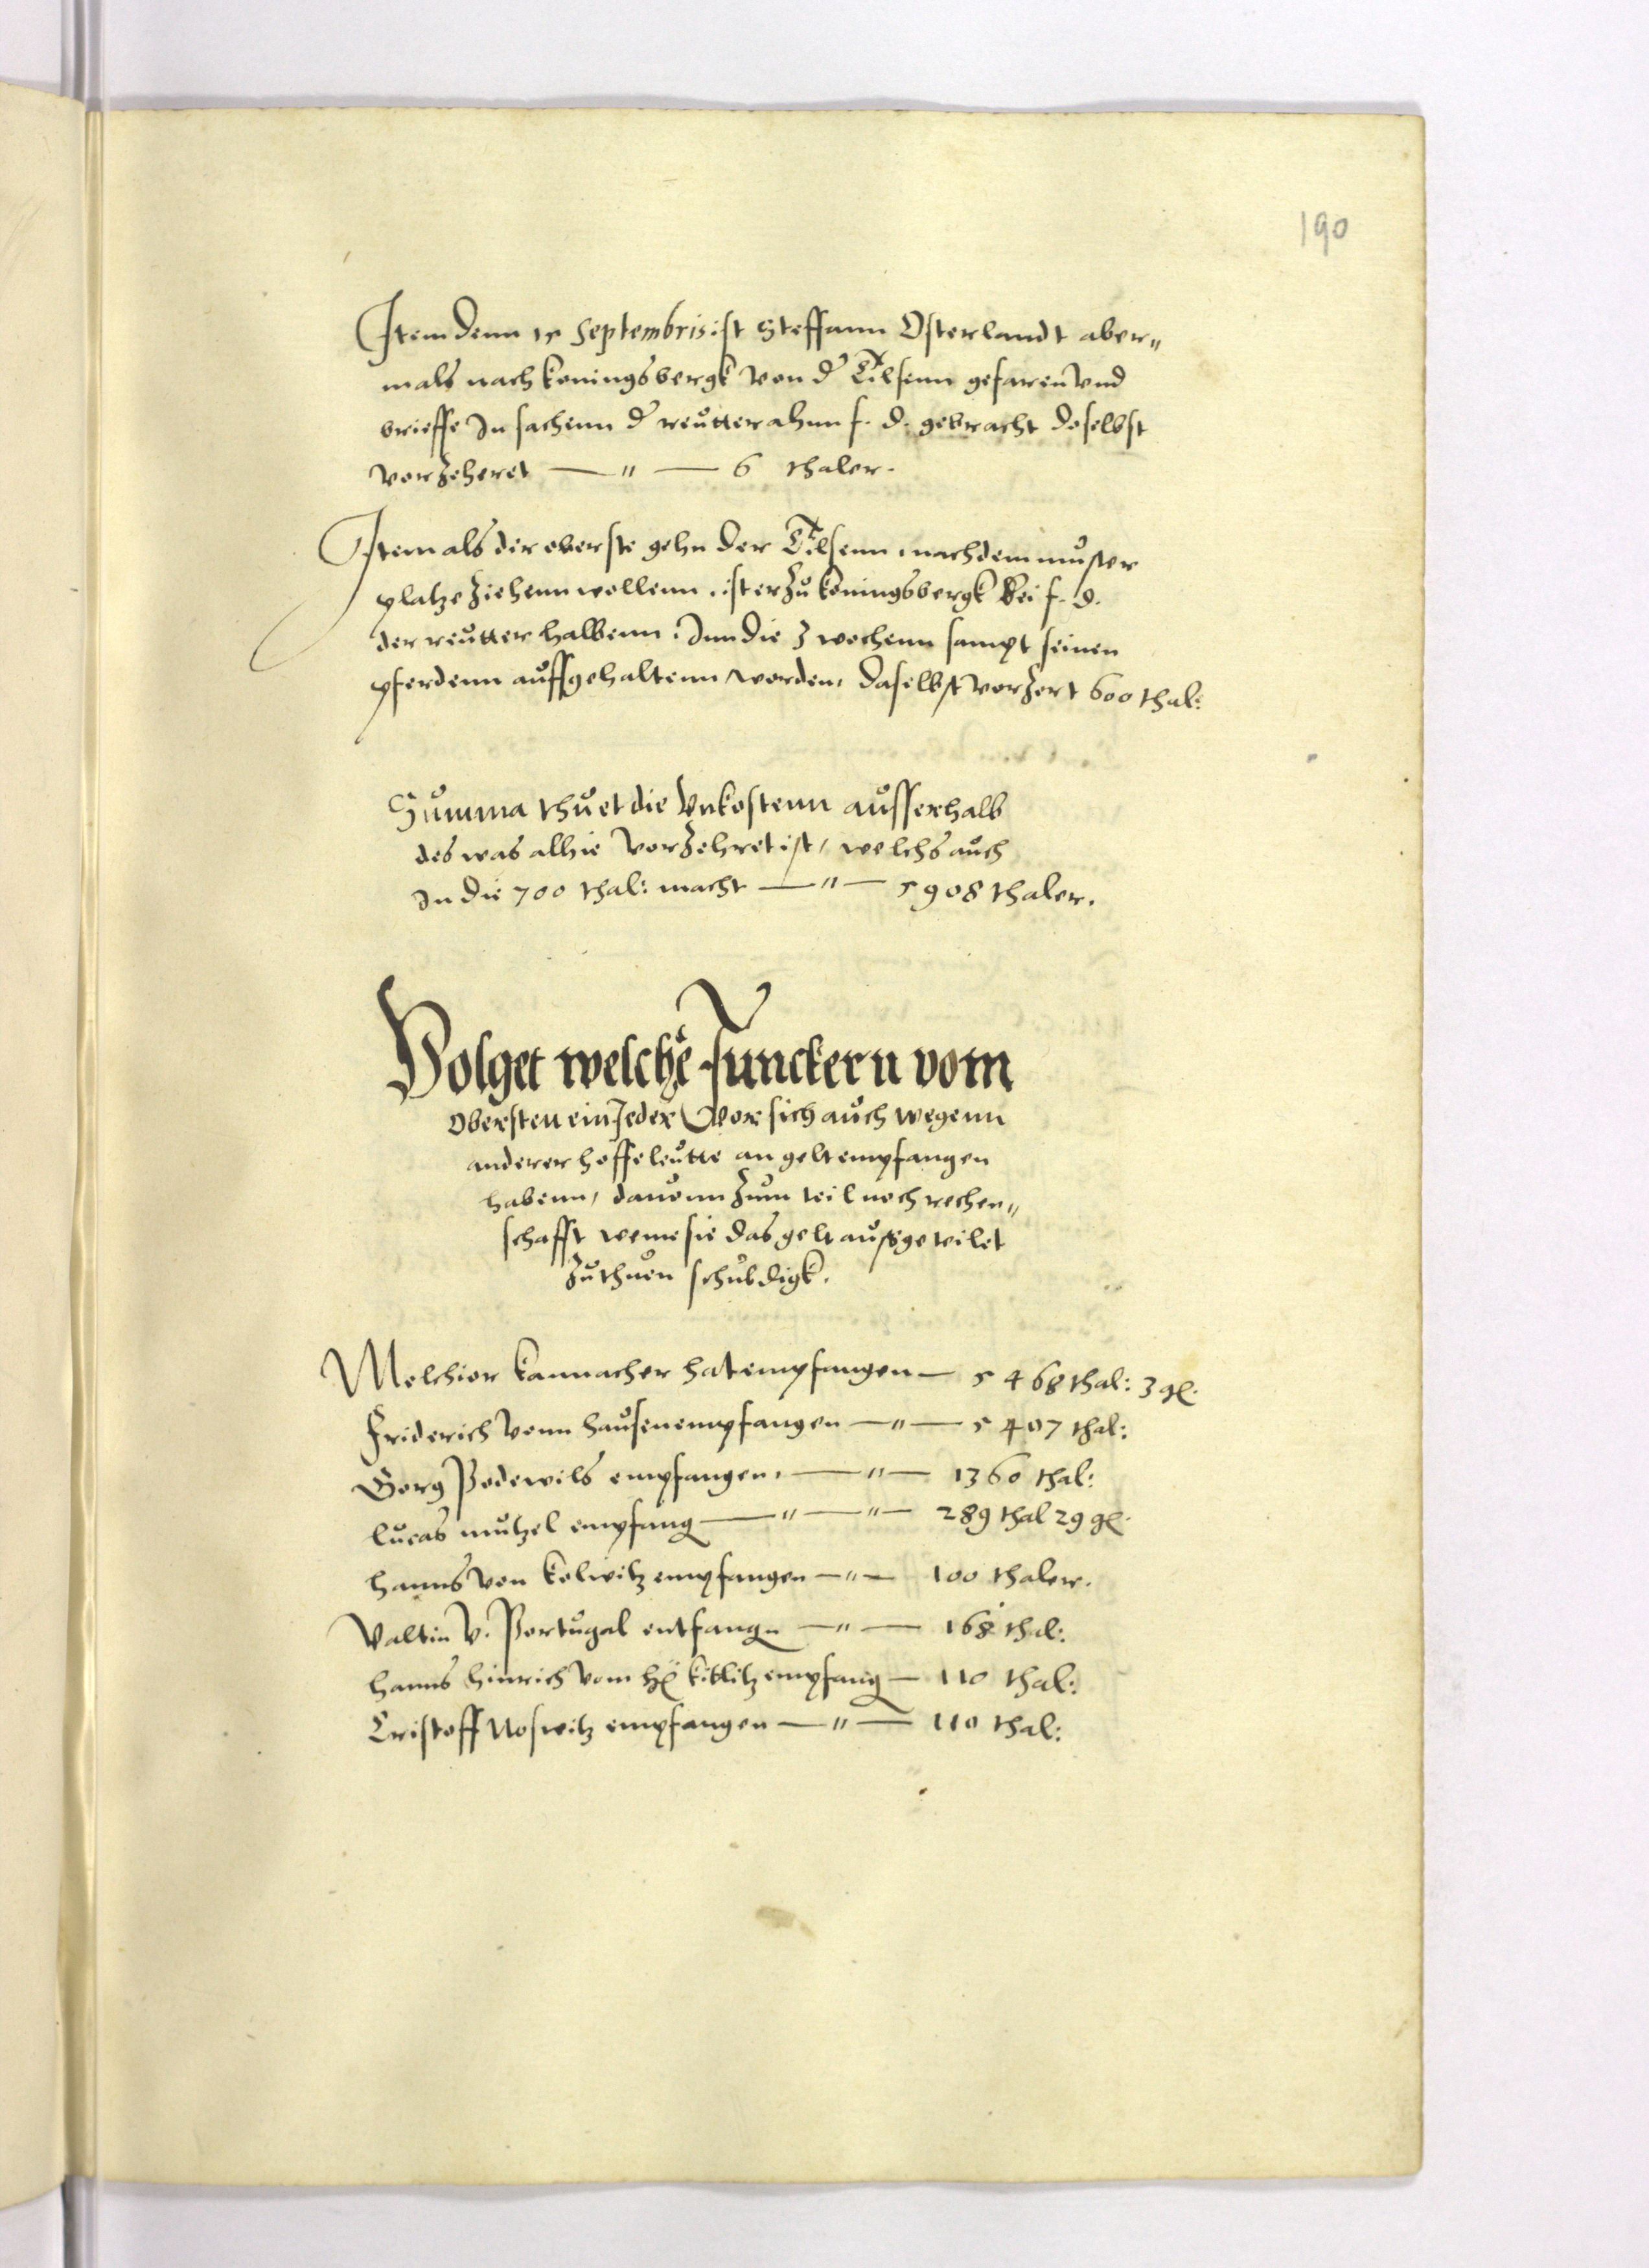 190
Item denn 15 Septembris ist Steffann Osterlandt aber„
mals nach koningsbergk von d' Tilsenn gefaren vnd
brieffe In sachenn d' reutter ahnn f. d. gebracht doselbst
vorzeheret — „ — 6 thaler.
Item als der oberste gehn der Tilsenn nach dem muster
platze ziehenn wollenn ist er zu koningsbergk bei f. d.
der reutter halbenn Inn die 3 wochenn sampt seinen
pferdenn auffgehaltenn worden, daselbst vorzert 600 thal:
Summa thuet die Vnkostenn ausserhalb
des was alhie vorzehret ist, welchs auch
In die 700 thal: macht — „ — 5908 thaler.
Volget welche Junckern vom
Obersten ein Jeder vor sich auch wegenn
anderer hoffeleutte an gelt empfangen
habenn, dauonn zum teil noch rechen„
schafft weme sie das gelt aussgeteilet
zuthuen schuldigk.
Melchior kannacher hat empfangen — 5468 thal: 3 gl.
Friderich vonn hausen empfangen — „ — 5407 thal:
Georg Podewils empfangen, — „ — 1360 thal:
lucas mutzel empfang — „ — „ — 289 thal 29 gl.
hanns von kolwitz empfangen — „ — 100 thaler.
Valtin v. Portugal entfangn — „ — 168 thal:
hanns hinrich vom hl kitlitz empfang — 110 thal:
Cristoff Noswitz empfangen — „ — 110 thal: